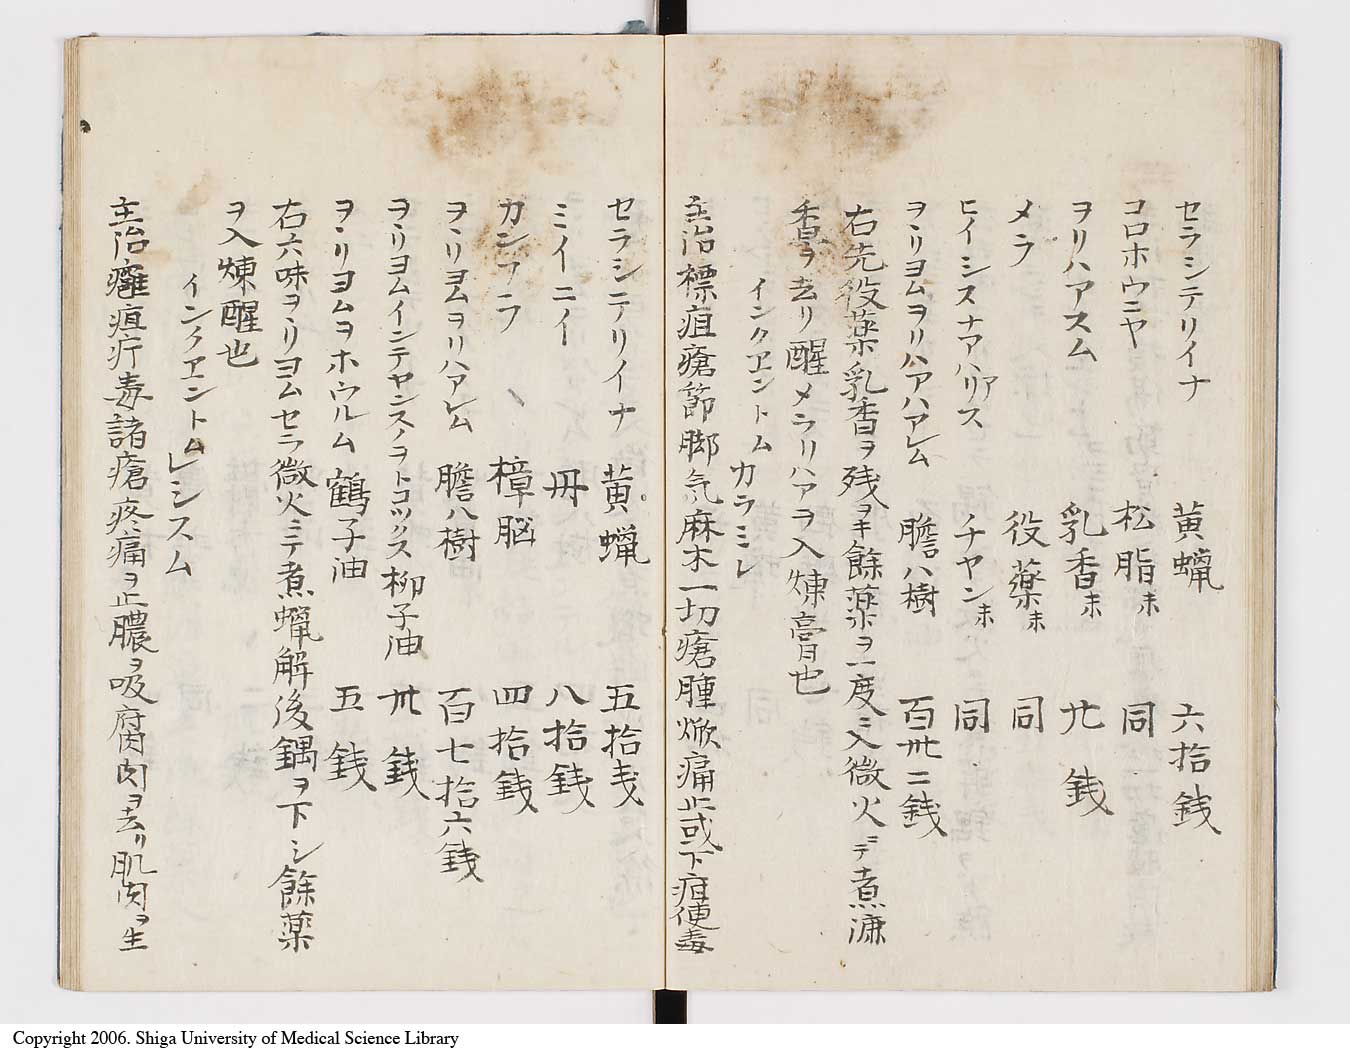 セラシテリイナ 黄蠟 六拾銭
コロホウニヤ 松脂末 同
ヲリハアスム 乳香末 廿銭
メラ 役薬末 同
ヒイシスナアハリアス チヤン末 同
ヲヽリヨムヲリハアハアレム 膽八樹 百卅二銭
右先役薬乳香ヲ残ヲキ餘薬ヲ一度ニ入微火ニテ煮濂
香ヲ去リ醒メラリハアヲ入煉膏也
インクヱントム カラミレ
主治標疽瘡節脚気麻木一切瘡腫焮痛止或下疳便毒
セラシニテリイナ 黄蠟 五拾戔
ミイニイ 丹 八拾銭
カンフラ 樟脳 四拾銭
ヲヽリヨムヲリハアレム 膽八樹 百七拾六銭
ヲヽリヨムインテヤンスノヲトコツクス 柳子油 卅銭
ヲヽリヨムヲホウルム 鶴子油 五銭
右六味ヲヽリヨムセラ微火ニテ煮蠟解後鍋ヲ下シ餘薬
ヲ入煉醒也
インクヱントム レシスム
主治癰疽疔毒諸瘡疼痛ヲ止膿ヲ吸腐肉肉ヲ去リ肌肉ヲ生
Copyright 2006. Shiga University of Medical Science Library